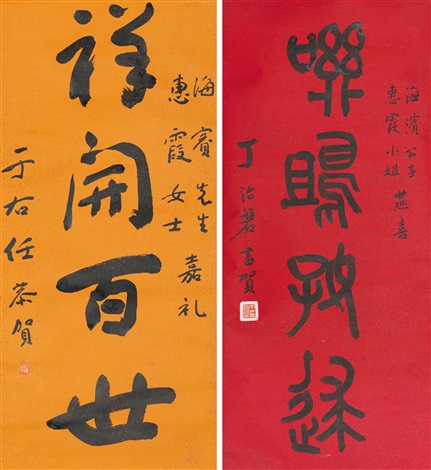 海賓先生
惠霞女士 嘉礼
祥開百世
于右任恭賀
海濱公子
惠霞小姐 燕喜
好逑
丁治磐書賀